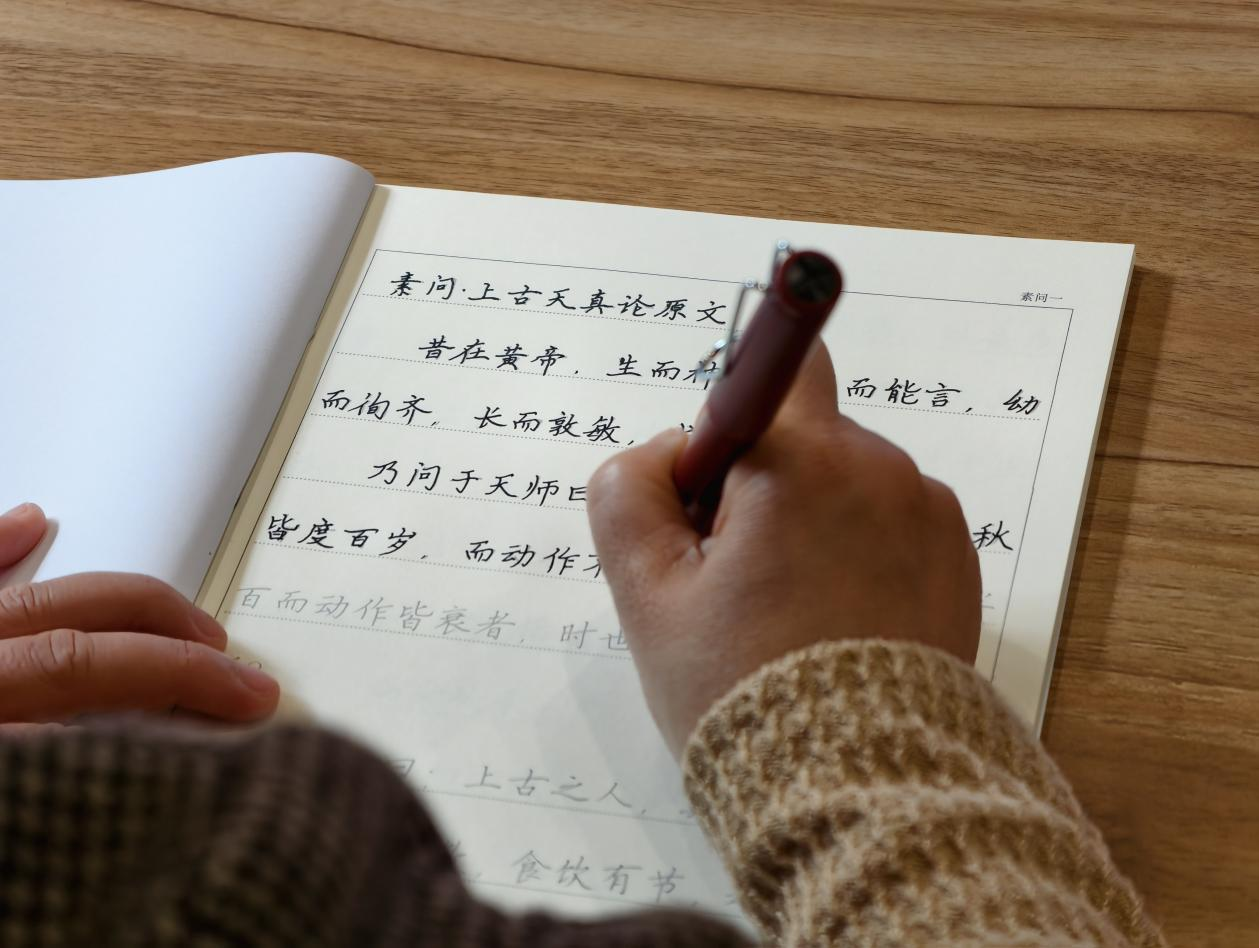 素问一
素问·上古天真论原文
昔在黄帝，生而神 而能言，幼
而徇齐，长而敦敏，
乃问于天师曰
皆度百岁，而动作不 秋
百而动作皆衰者，时也
上古之人，
食饮有节，